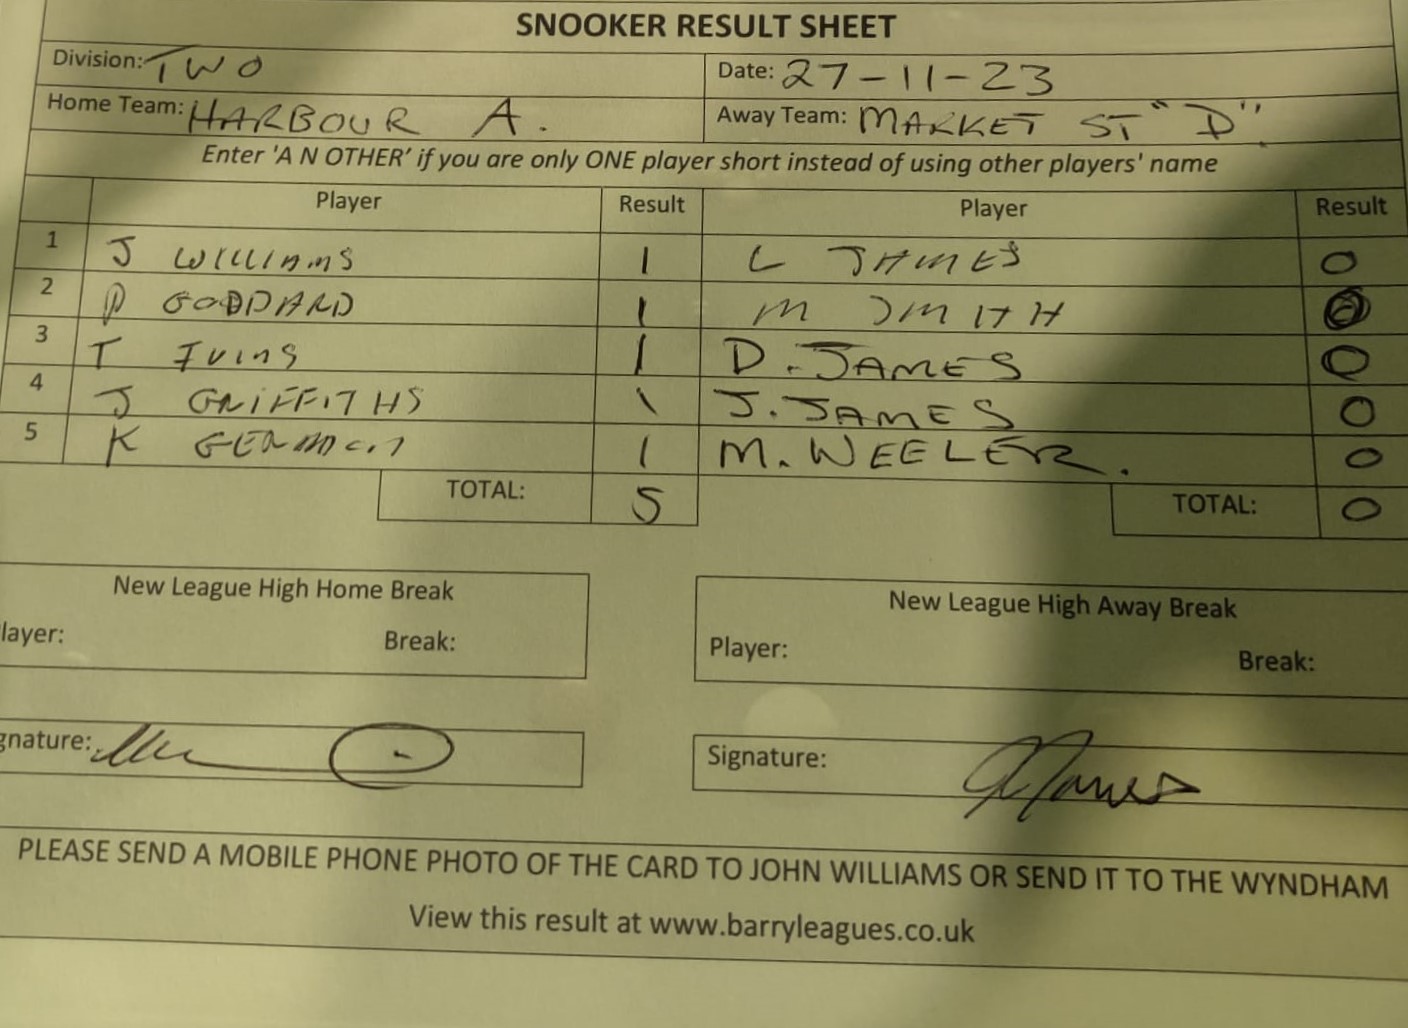 SNOOKER RESULT SHEET
Division: TWO Date: 27-11-23
Home Team: HARBOUR A. Away Team: MARKET ST "D".
Enter 'A N OTHER' if you are only ONE player short instead of using other players' name
Player Result Player Result
1 J WILLIAMS 1 L JAMES 0
2 P GODDARD 1 M SMITH 0
3 T IVINS 1 D. JAMES 0
4 J GRIFFITHS 1 J. JAMES 0
5 K 1 M. WEELER. 0
TOTAL: 5 TOTAL: 0
New League High Home Break New League High Away Break
layer: Break: Player: Break:
gnature: Signature:
PLEASE SEND A MOBILE PHONE PHOTO OF THE CARD TO JOHN WILLIAMS OR SEND IT TO THE WYNDHAM
View this result at www.barryleagues.co.uk